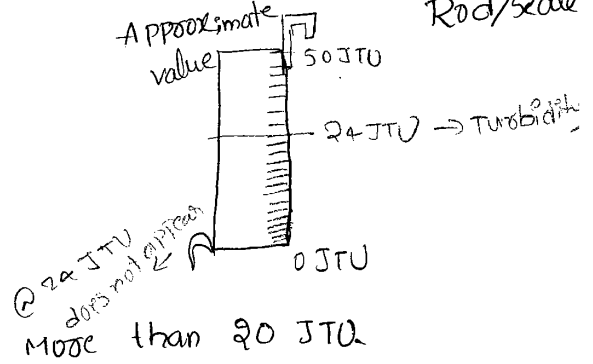 Rod/scale
Approximate
value
50 JTU
24 JTU → Turbidity
0 JTU
@ 24 JTU
does not appear
More than 20 JTU.